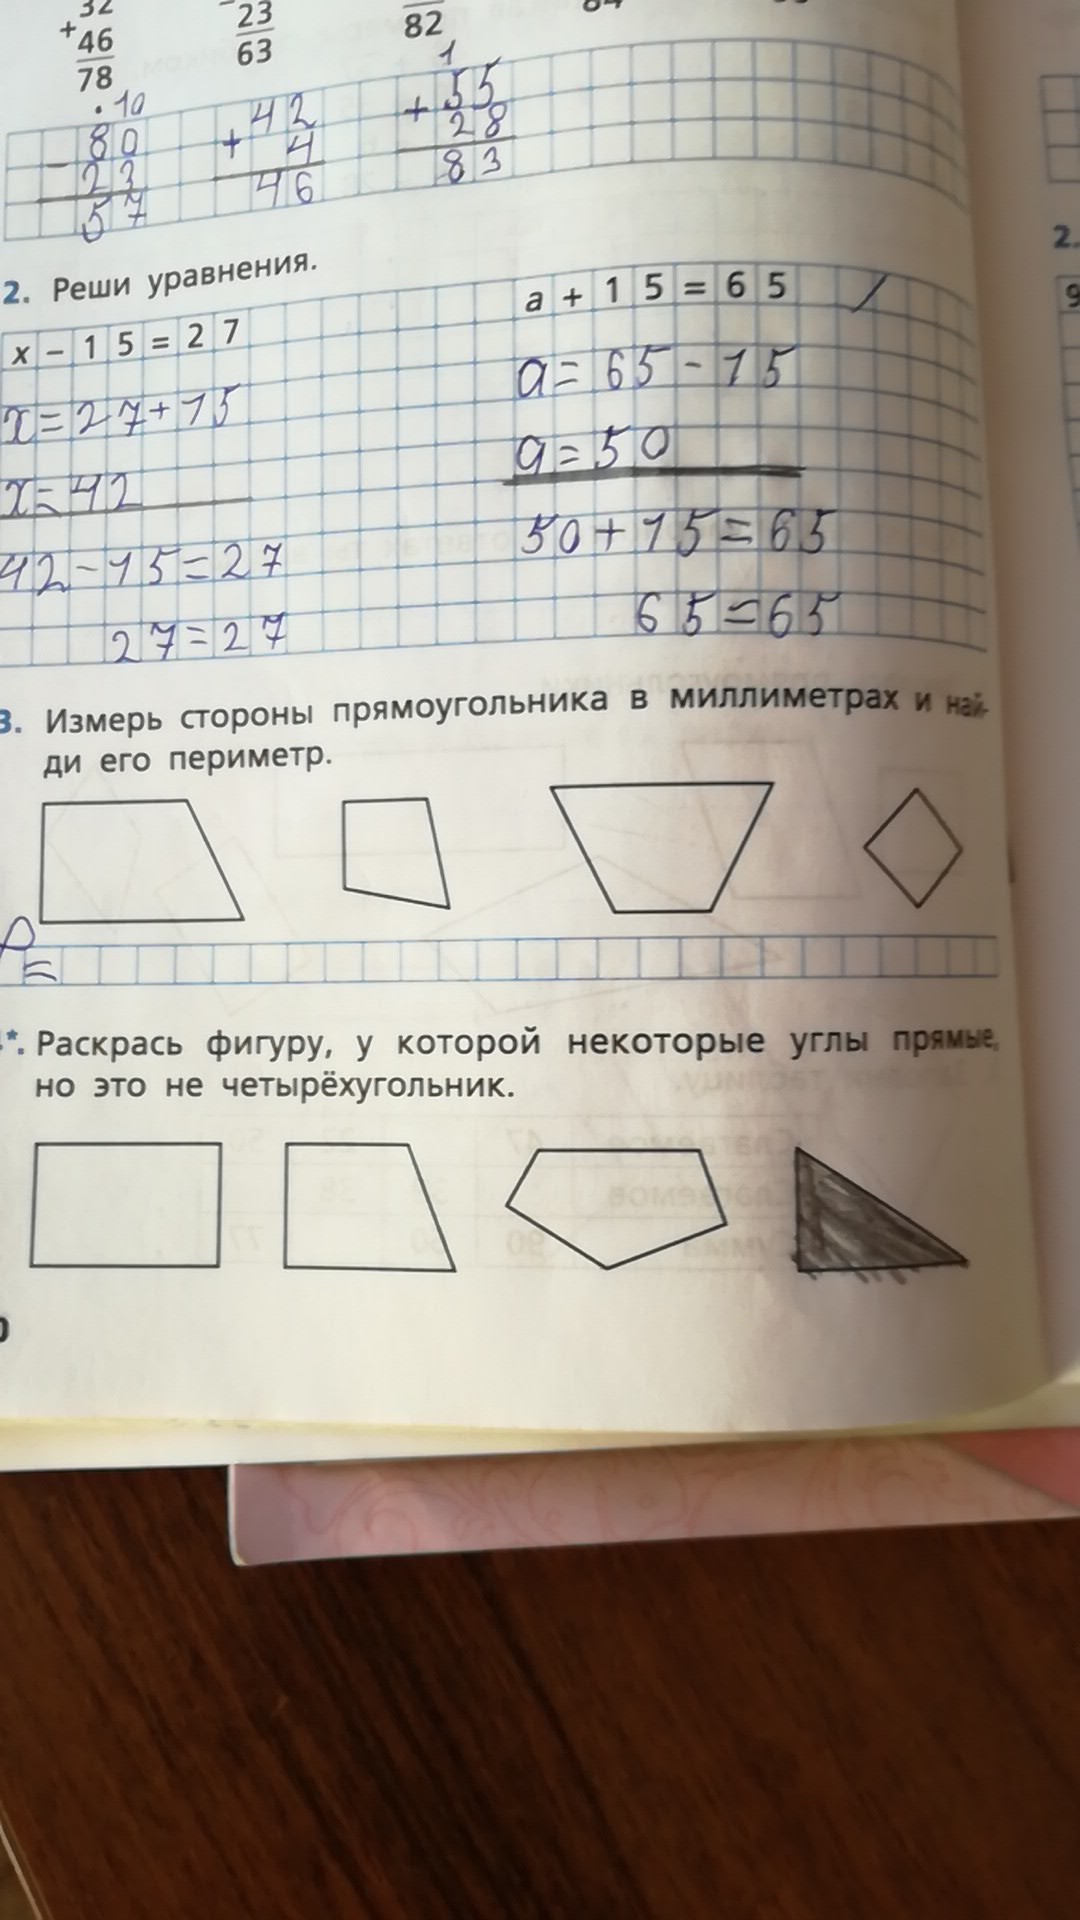 32
+
46
78
23
63
82
. 10
80
-
23
57
42
+ 4
46
1
+ 55
28
83
2. Реши уравнения.
x - 15 = 27
x = 27 + 15
x = 42
42 - 15 = 27
27 = 27
a + 15 = 65
a = 65 - 15
a = 50
50 + 15 = 65
65 = 65
3. Измерь стороны прямоугольника в миллиметрах и най-
ди его периметр.
P =
*. Раскрась фигуру, у которой некоторые углы прямые,
но это не четырёхугольник.
2.
9